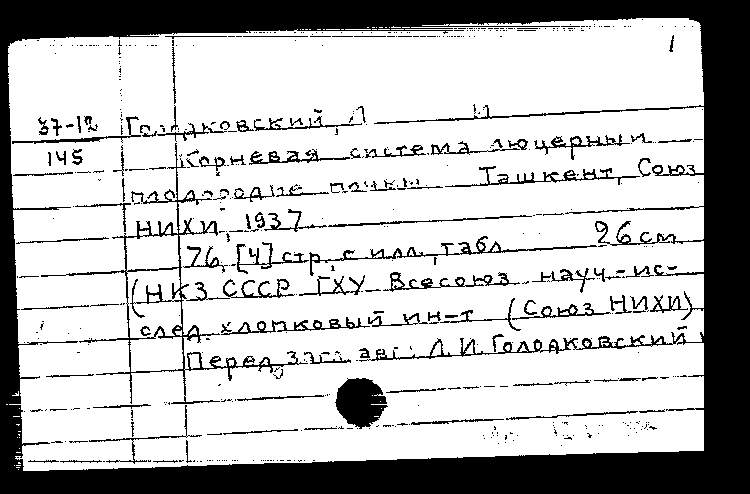 1
37-12 Голодковский, Л И
145 Корневая система люцерны и
плодородие почвы Ташкент, Союз
НИХИ, 1937
76, [4] стр. с илл., табл 26 см
(НКЗ СССР ГХУ Всесоюз науч-ис-
след. хлопковый ин-т (Союз НИХИ)
Перед загл. авт: Л. И. Голодковский